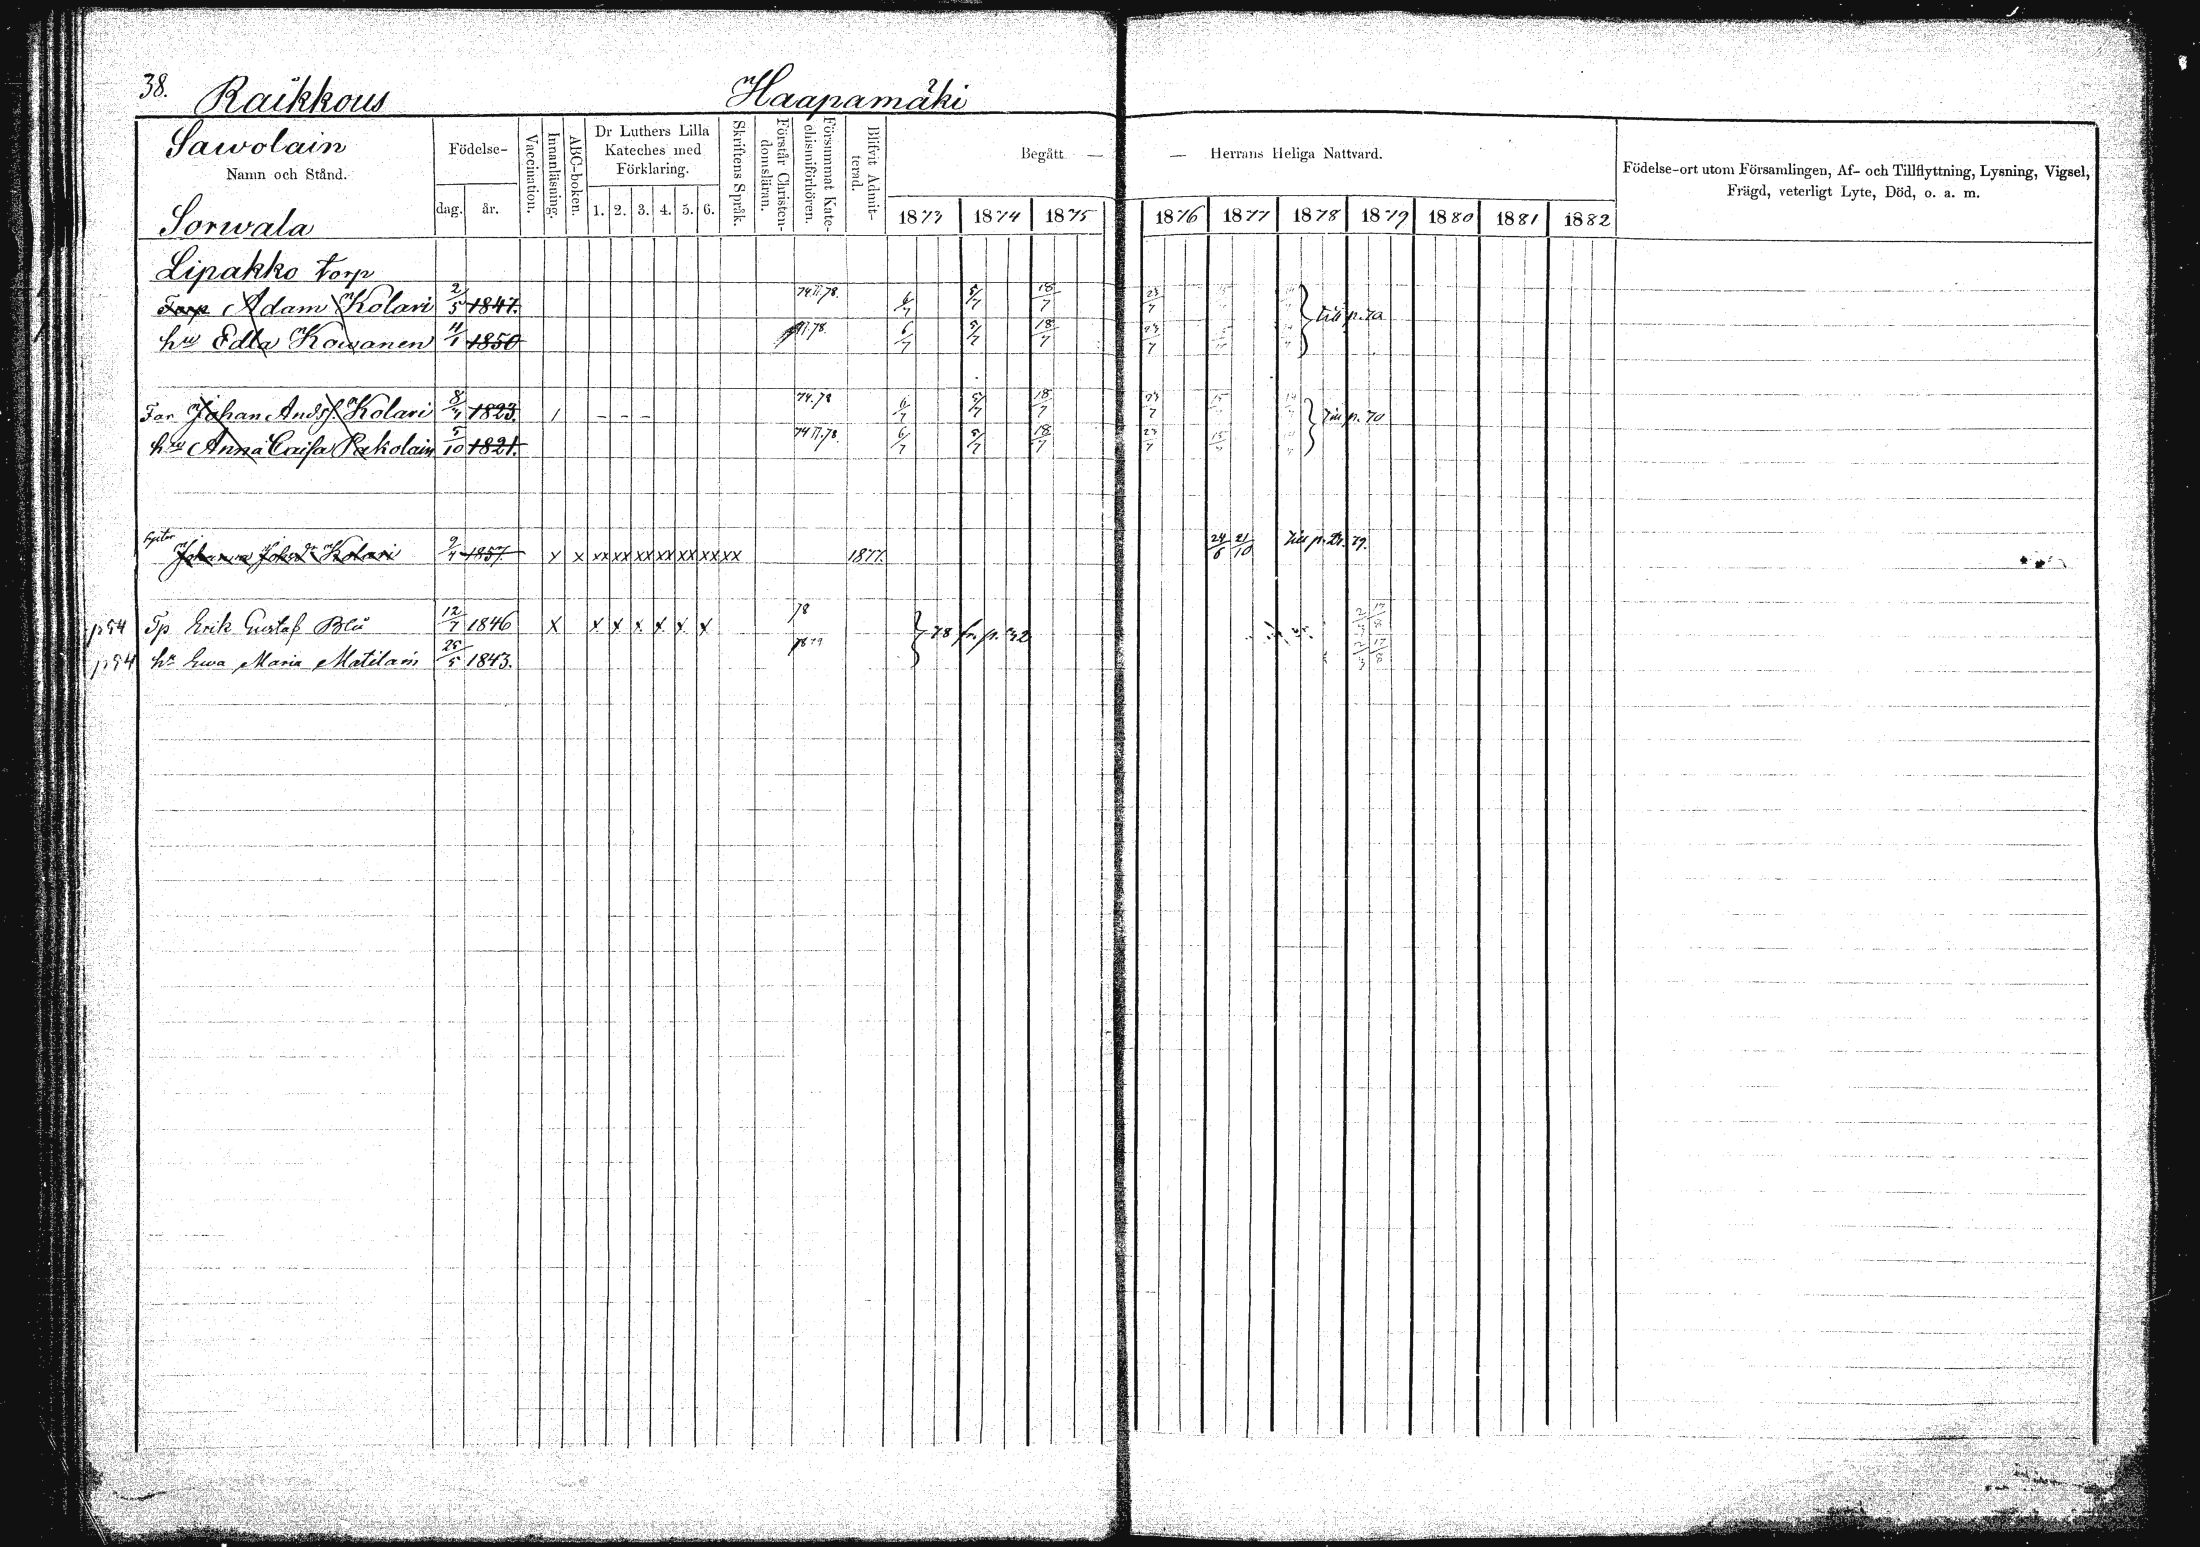 38. Raikkous Haapamäki
Sawolain
Namn och Stånd.
Sorwala
Födelse-
dag. år.
Vaccination.
Innanläsning.
ABC-boken.
Dr Luthers Lilla Kateches med Förklaring.
1. 2. 3. 4. 5. 6.
Skriftens Språk.
Förstår Christendomsläran.
Försummat Katechismiförhören.
Blifvit Admitterad.
Begått — — Herrans Heliga Nattvard.
1873 1874 1875 1876 1877 1878 1879 1880 1881 1882
Födelse-ort utom Församlingen, Af- och Tillflyttning, Lysning, Vigsel,
Frägd, veterligt Lyte, Död, o. a. m.
Lipakko torp
Torp Adam Kolari 2/5 1847. 6/7 5/7 18/7 23/7 till p. 70
hu Edla Kowanen 4/1 1850 6/7 5/7 18/7 23/7
Far Johan Andsf. Kolari 8/4 1823. 1 - - - 74.78 6/7 5/7 18/7 23/7 Till p. 70
hu Anna Caisa Pakolain 5/10 1821. 6/7 5/7 18/7 23/7
Johanna Kolari 1857. x x xx xx xx xx xx xx xx 1877. 24/6 21/10
p 54 Tp Erik Gustaf Blå 12/7 1846 x x x x x x x 78 78 fr. p.
p 54 hu Ewa Maria Matilain 25/5 1843.